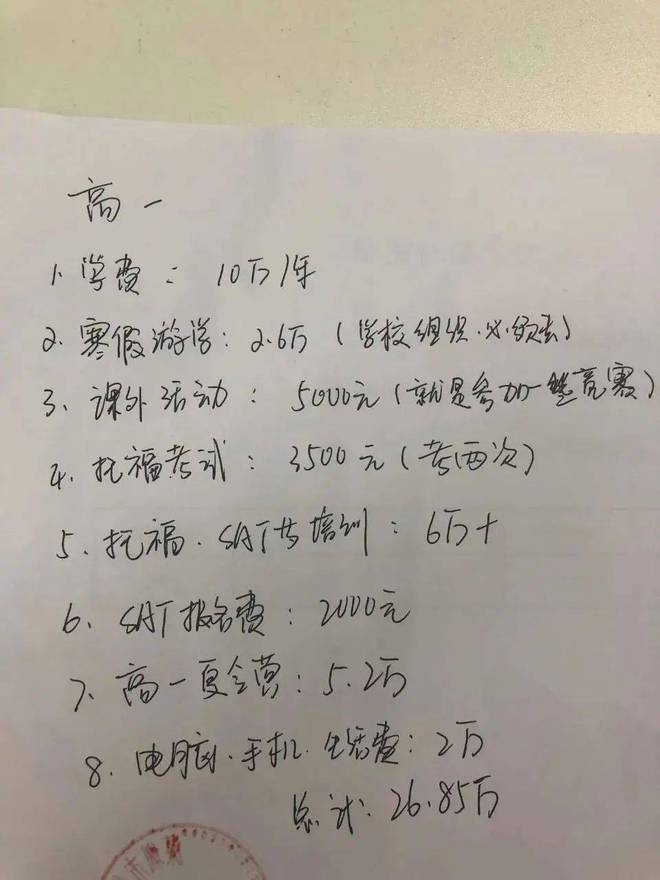 高一
1、学费：10万/年
2、寒假游学：2.6万（学校组织.必须去）
3、课外活动：5000元（就是参加一些竞赛）
4、托福考试：3500元（考两次）
5、托福.SAT等培训：6万+
6、SAT报名费：2000元
7、高一夏令营：5.2万
8、电脑.手机.生活费：2万
总计：26.85万